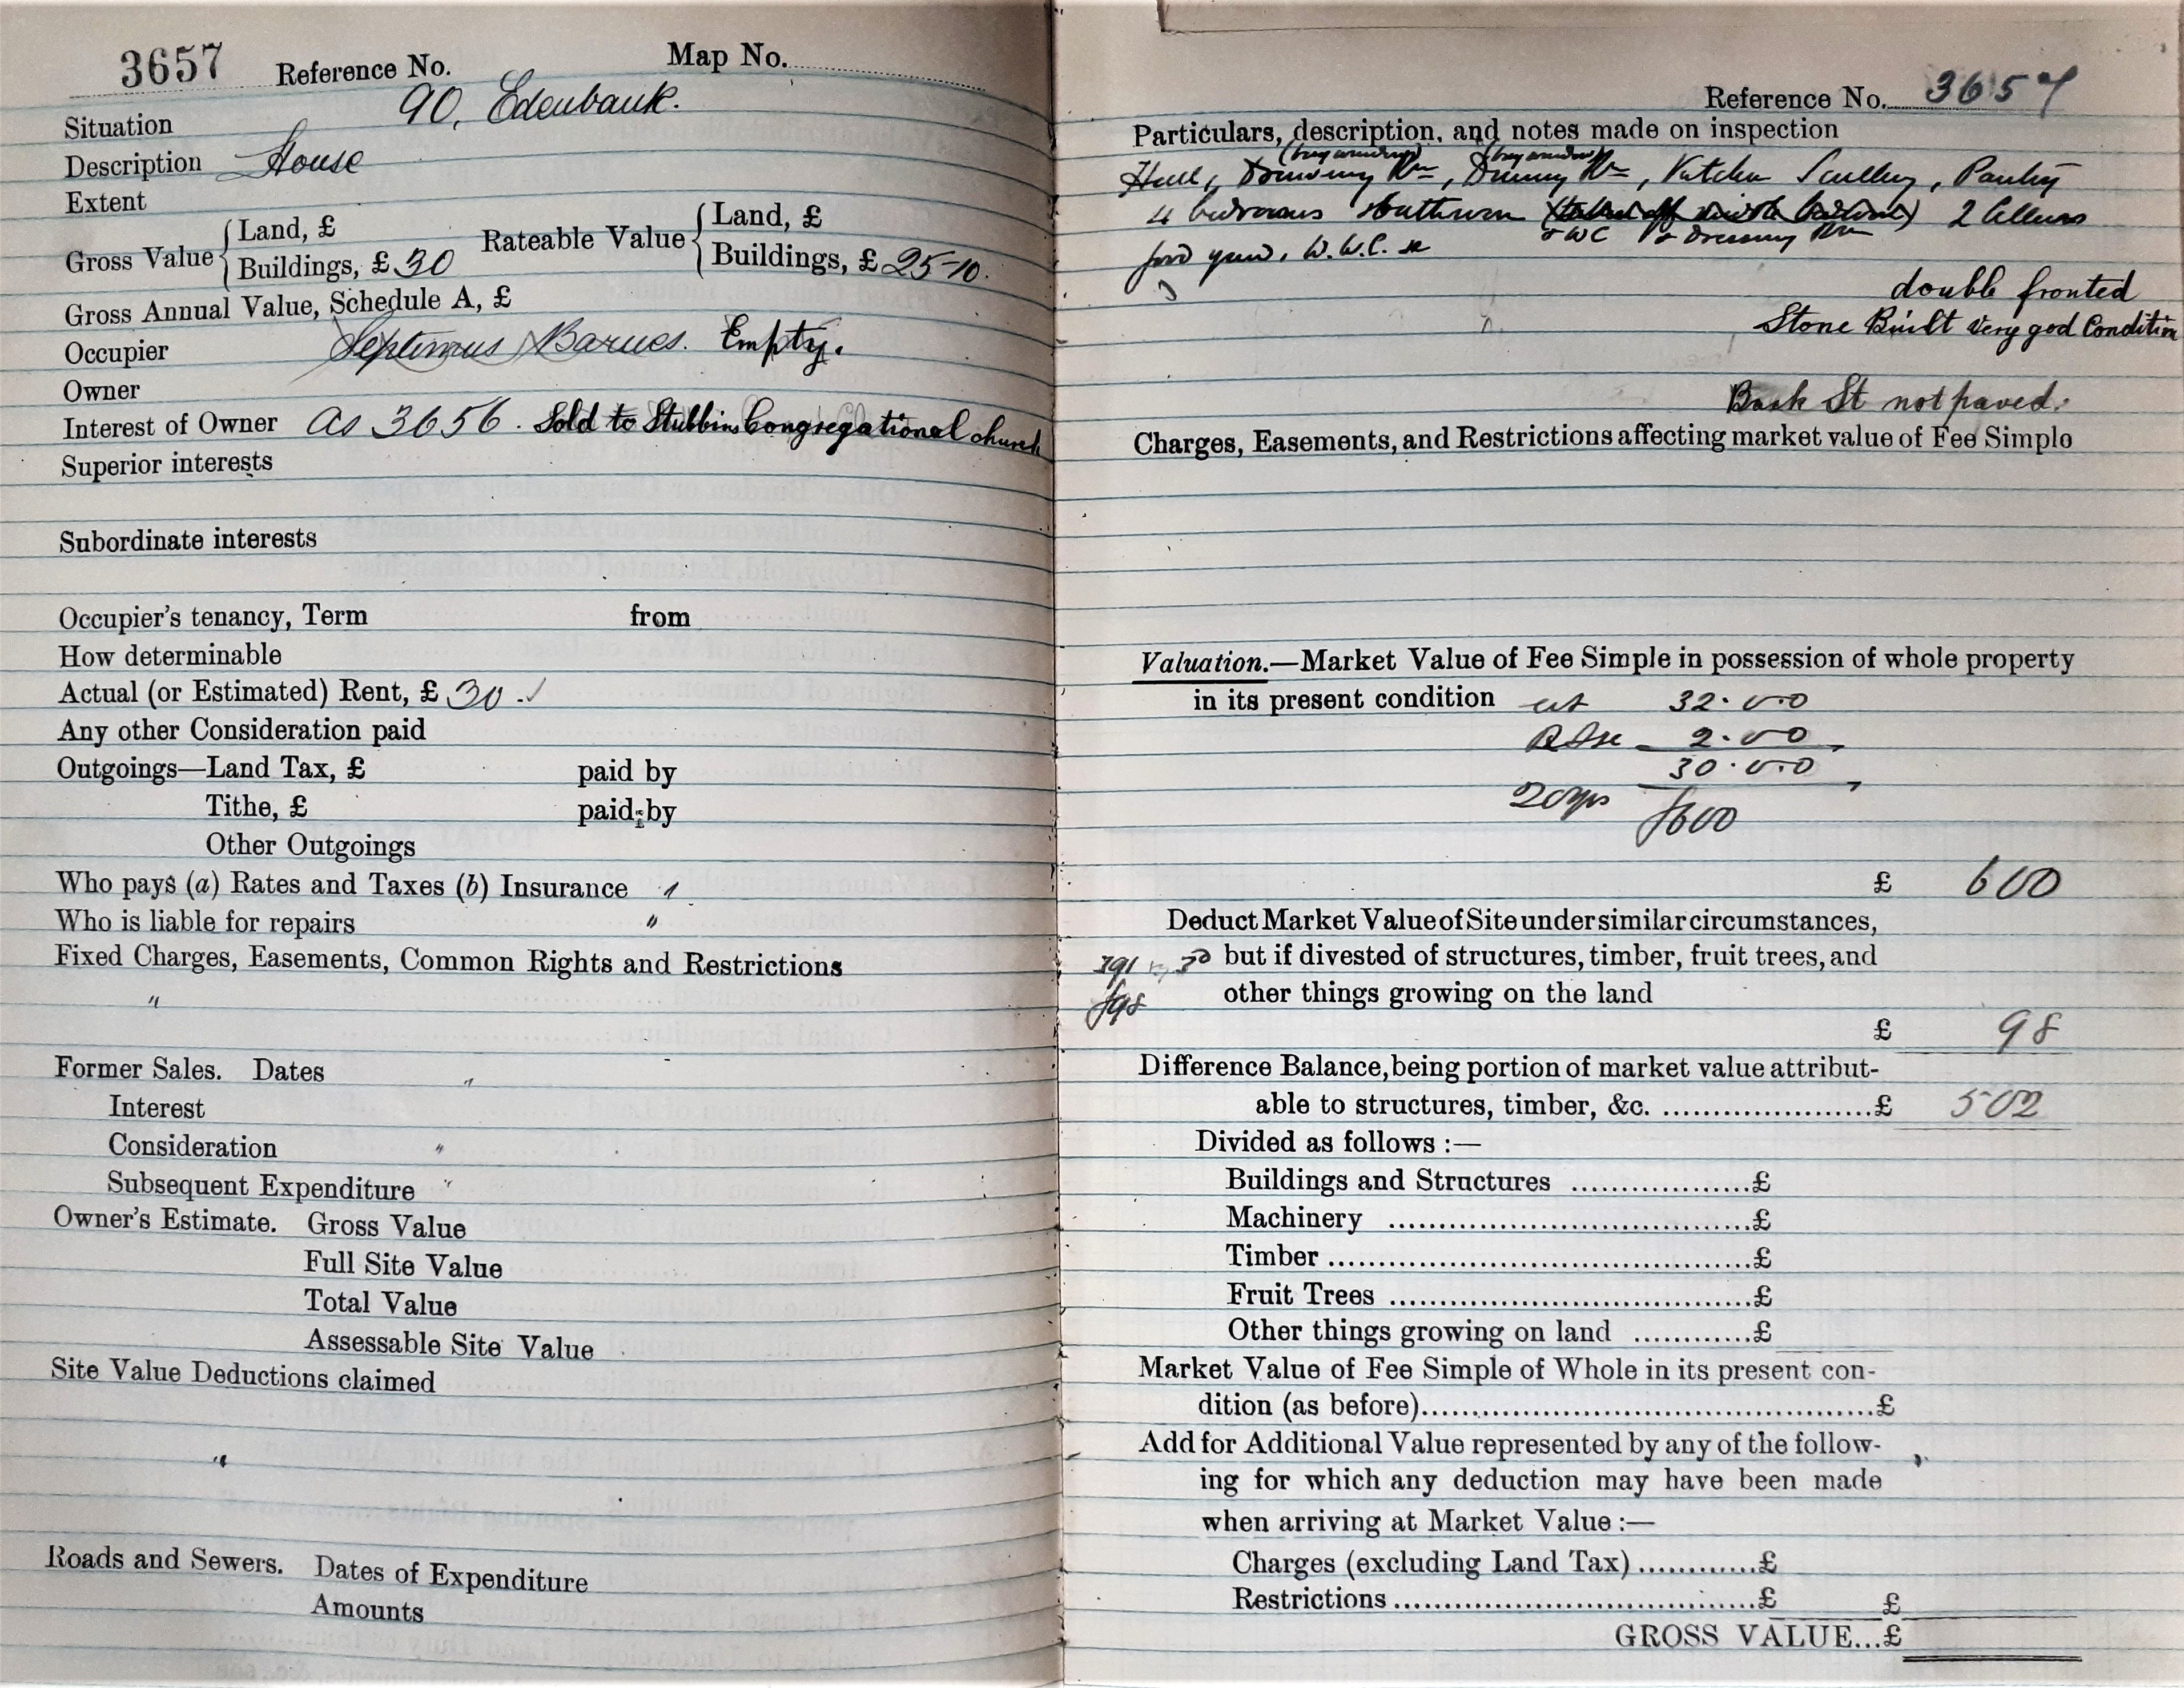 3657 Reference No. Map No.
Situation 90, Edenbank.
Description House
Extent
Gross Value { Land, £
Buildings, £ 30
Rateable Value { Land, £
Buildings, £ 25-10.
Gross Annual Value, Schedule A, £
Occupier Septimus Barnes. Empty.
Owner
Interest of Owner As 3656. Sold to Stubbins Congregational church
Superior interests
Subordinate interests
Occupier's tenancy, Term from
How determinable
Actual (or Estimated) Rent, £ 30
Any other Consideration paid
Outgoings—Land Tax, £ paid by
Tithe, £ paid by
Other Outgoings
Who pays (a) Rates and Taxes (b) Insurance
Who is liable for repairs "
Fixed Charges, Easements, Common Rights and Restrictions
"
Former Sales. Dates "
Interest
Consideration "
Subsequent Expenditure "
Owner's Estimate. Gross Value
Full Site Value
Total Value
Assessable Site Value
Site Value Deductions claimed
"
Roads and Sewers. Dates of Expenditure
Amounts
Reference No. 3657
Particulars, description, and notes made on inspection
(bay window) (bay window)
Hall, Drawing Rm, Dining Rm, Kitchen Scullery, Pantry
4 bedrooms Bathroom 2 Cellars
& WC & Dressing Rm
good yard, W.W.C. &c
double fronted
Stone Built Very good Condition
Back St not paved.
Charges, Easements, and Restrictions affecting market value of Fee Simple
Valuation.—Market Value of Fee Simple in possession of whole property
in its present condition est 32.0.0
2.0.0
30.0.0
20 yrs £600
£ 600
Deduct Market Value of Site under similar circumstances,
391 30 but if divested of structures, timber, fruit trees, and
£98 other things growing on the land
£ 98
Difference Balance, being portion of market value attribut-
able to structures, timber, &c. ......................£ 502
Divided as follows :—
Buildings and Structures ..................£
Machinery ....................................£
Timber ...........................................£
Fruit Trees ....................................£
Other things growing on land ............£
Market Value of Fee Simple of Whole in its present con-
dition (as before)..............................................£
Add for Additional Value represented by any of the follow-
ing for which any deduction may have been made
when arriving at Market Value :—
Charges (excluding Land Tax)............£
Restrictions ......................................£ £
GROSS VALUE...£